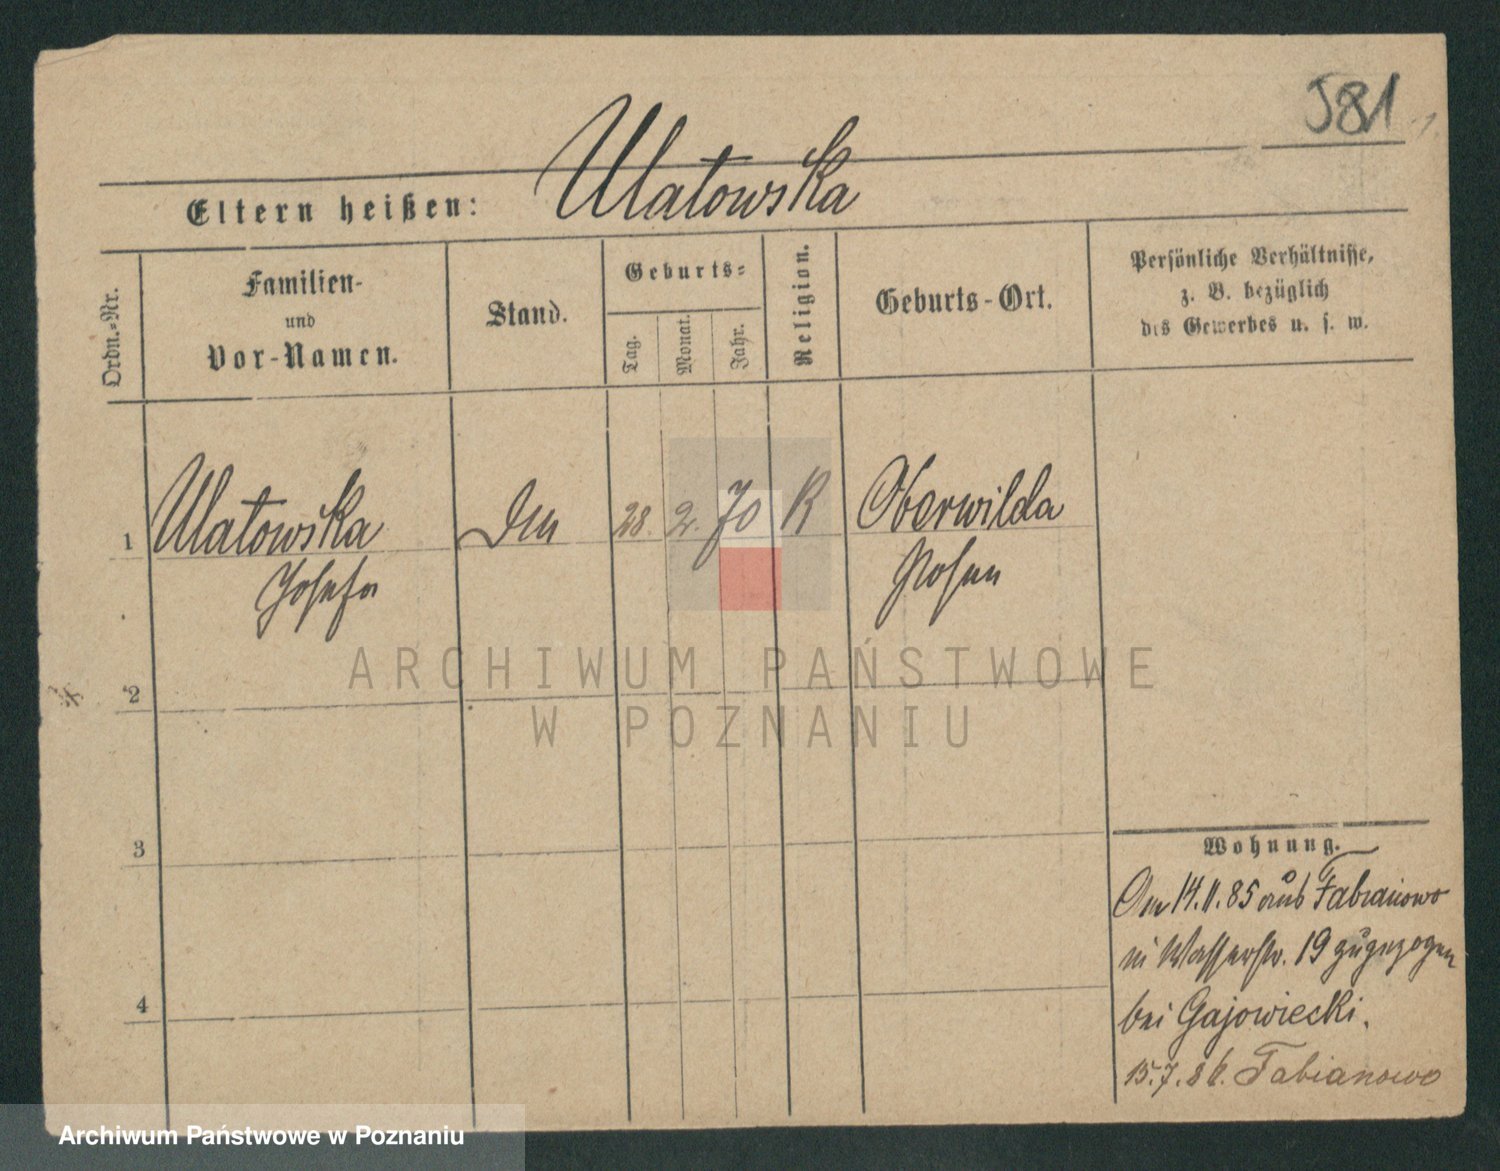 581
Eltern heißen: Ulatowska
Ordn.-Nr.
Familien-
und
Vor-Namen.
Stand.
Geburts-
Tag.
Monat.
Jahr.
Religion.
Geburts-Ort.
Persönliche Verhältnisse,
z. B. bezüglich
des Gewerbes u. s. w.
1 Ulatowska 28. 2. 70 K Oberwilda
Josefa Posen
2
3
4
Wohnung.
Am 14.11.85 aus Fabianowo
in Wasserstr. 19 zugezogen
bei Gajowiecki.
15.7.86. Fabianowo
ARCHIWUM PAŃSTWOWE
W POZNANIU
Archiwum Państwowe w Poznaniu